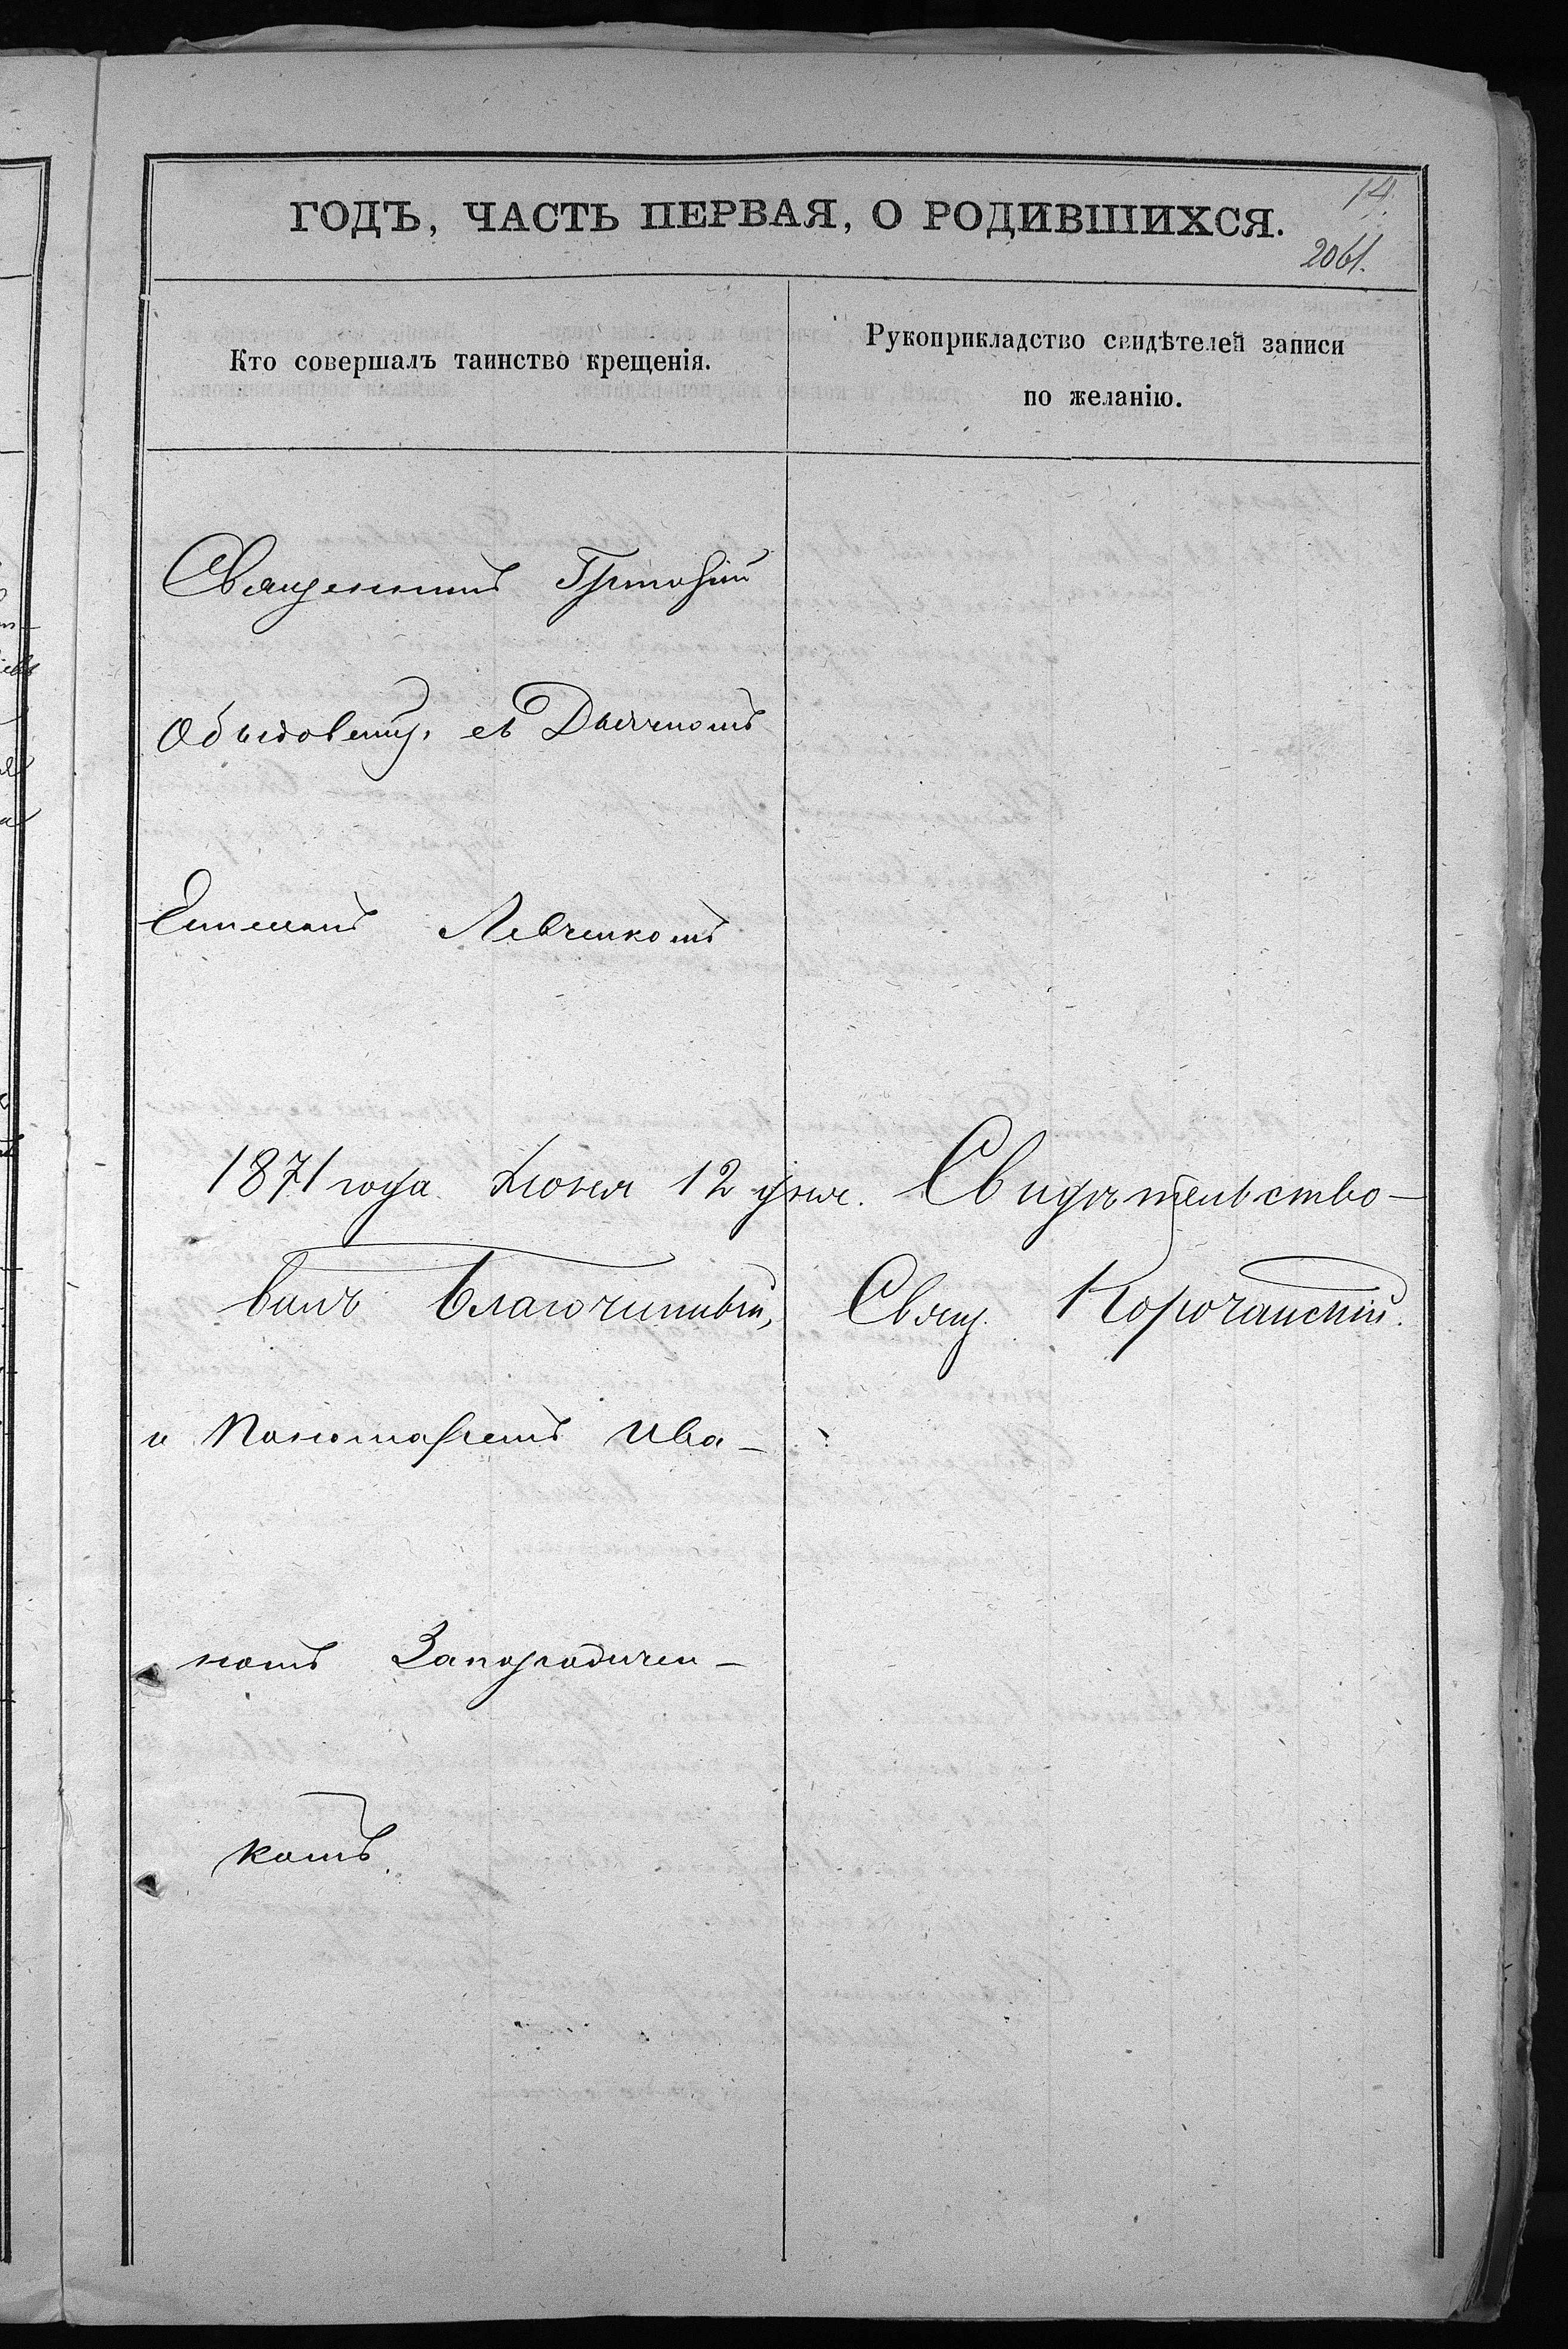 14.
ГОДЪ, ЧАСТЬ ПЕРВАЯ, О РОДИВШИХСЯ.
2061.
Кто совершалъ таинство крещенія.
Рукоприкладство свидѣтелей записи
по желанію.
Священникъ Григорій
съ Дьячкомъ
Левченкомъ
1871 года Іюня 12 дня. Свидѣтельство-
валъ Благочинный, Свящ. Корочанскій.
и Пономаремъ Ива-
номъ
комъ.